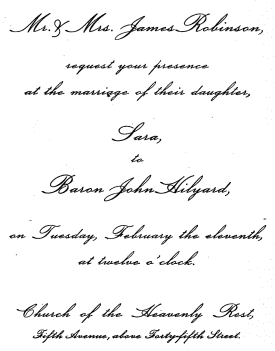 Mr. & Mrs. James Robinson,
request your presence
at the marriage of their daughter,
Sara,
to
Baron John Hilyard,
on Tuesday, February the eleventh,
at twelve o'clock.
Church of the Heavenly Rest,
Fifth Avenue, above Forty-fifth Street.